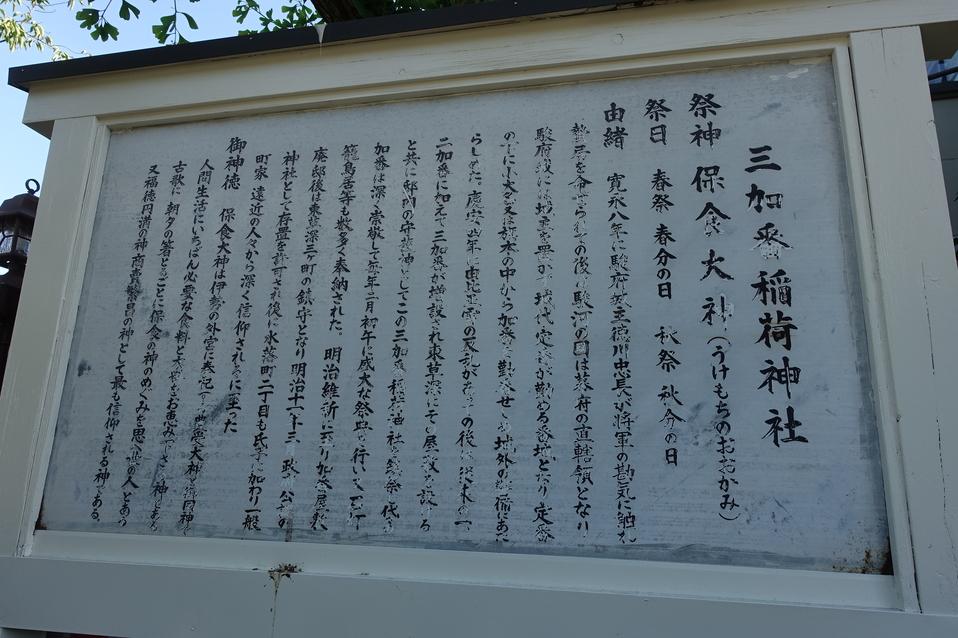 三加番稲荷神社
祭神 保食大神(うけもちのおおかみ)
祭日 春祭 春分の日 秋祭 秋分の日
由緒 寛永八年に駿府城主徳川忠長が将軍の勘気に触れ
蟄居を命ぜられその後駿河の国は幕府の直轄領となり
駿府城には城主を置かず城代定番が勤める番地となり定番
の下に小大名又は旗本の中から加番を勤番せしめ地外の警備にあた
らしめた。慶安四年に由比正雪の反乱があり其の後従来の一
二加番に加えて三加番が増設され東草深にして屋敷を設ける
と共に邸内の守護神としてこの三加番稲荷神社を祭 代々
加番は深く崇敬して毎年二月初午に盛大な祭典を行い
籠鳥居等も数多く奉納された。明治維新に至り加番屋敷
廃邸後は東草深三ケ町の鎮守となり明治十一
神社として存置を許可され後に水落町二丁目も氏子に加わり一般
町家 遠近の人々から深く信仰されるに至った
御神徳 保食大神は伊勢の外宮に奉祀 豊受大神と御同神
人間生活にいちばん必要な食料と お恵み 神である
古歌に 朝夕の箸とるごとに保食の神のめぐみを思へ世の人とあり
又福徳円満の神 商売繁昌の神として最も信仰される神である。